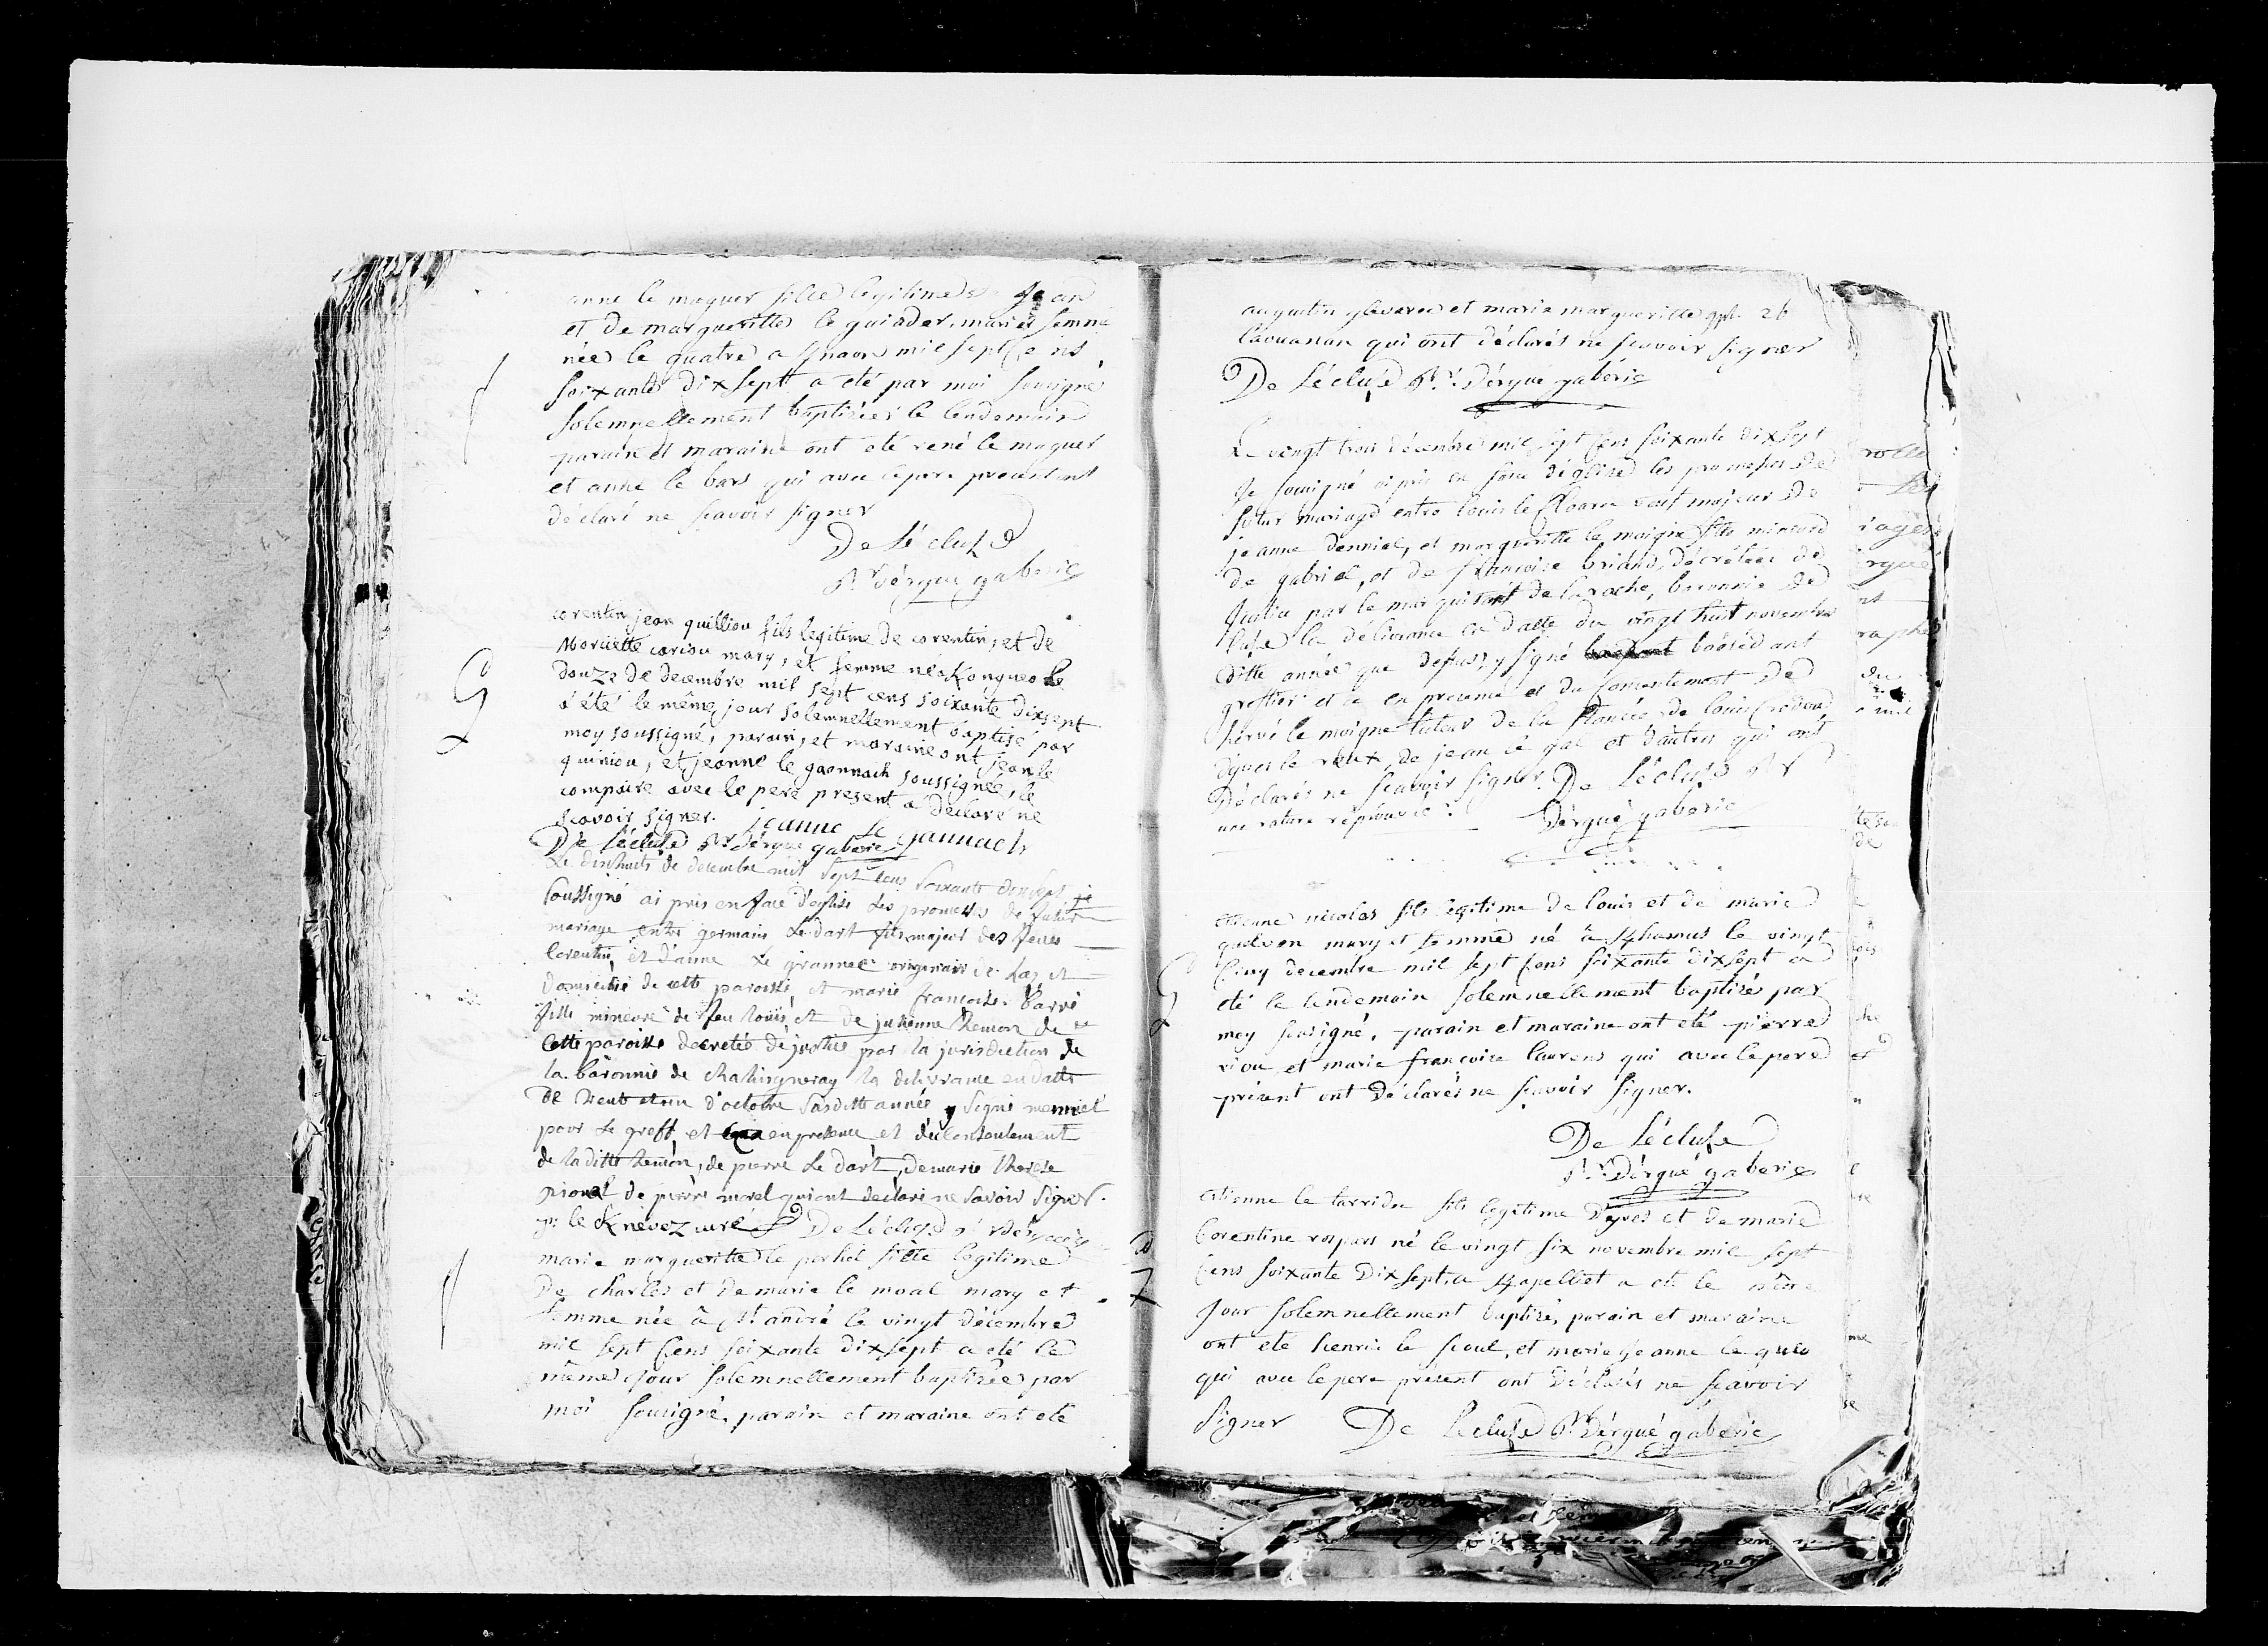 anne le maguer fille legitime de Jean
et de margueritte le guiader, mariés femme
née le quatre a mil sept cens
soixante dix sept a eté par moi sousigné
solemnellement baptisée le lendemain
parain et maraine ont eté rené le maguer
et anne le bars qui avec le pere present ont
déclaré ne scavoir signer
De Lécluse
Rr. dérgue gaberic
corentin jean quilliou fils legitime de corentin, et de
Moriette cariou mary, et femme né a Kongueo le
douze de decembre mil sept cens soixante dixsept
a été le même jour solemnellement baptisé par
moy soussigné, parain, et maraine ont jean le
quiniou, et jeanne le gaonnach soussignée, le
compaire avec le pere present a déclaré ne
scavoir signer. jeanne le gannach
De Lécluse Rr. dérgue gaberic
Le dixhuit de decembre mil sept cens soixante dixsept je
soussigné ai pris en face d'eglise les promesses de futur
mariage entre germain Le dart fils majeur des feus
Corentin, et d'anne Le grannec originaire de Laz et
domicilié de cette paroisse et marie françoise barré
fille mineure de feu louis et de julienne hemon de
cette paroisse decretée de justice par la jurisdiction de
la baronnie de la delivrance en datte
de trent et un d'octobre susditte année y signé menniel
pour le greff, et en presence et du consentement
de laditte hemon, de pierre Le dart, de marie therese
de pierre morel qui ont declaré ne savoir signer.
le Knévez curé De Lécluse
marie margueritte le porhel fille legitime
De charles et de marie le moal mary et
femme née à St. andré le vingt décembre
mil sept cens soixante dixsept a eté le
même jour solemnellement baptisée par
moi sousigné, parain et maraine ont eté
augustin et marie margueritte
qui ont déclarés ne scavoir signer
De Lécluse Rr. dérgué gaberic
Le vingt trois décembre mil sept cens soixante dixsept
Je sousigné ai pris en face d'église les promesses de
futur mariage entre louis le Cloarec veuf majeur de
jeanne denniel, et margueritte le moigne fille mineure
de gabriel, et de francoise briand, décrétée de
justice par le marquisat de laroche, baronnie de
la délivrance en datte du vingt huit novembre
ditte année que dessus, y signé
greffier et de en presence et du consentement de
hervé le moigne tuteur de la fiancée de louis
d'yves le roux, de jean le gal et d'autres qui ont
déclarés ne scavoir signer. De Lécluse Rr
une rature réprouvée. Dérgué gaberic
etienne nicolas fils legitime de louis et de marie
quelven mary et femme né à le vingt
cinq decembre mil sept cens soixante dixsept a
eté le lendemain solemnellement baptisés par
moy sousigné, parain et maraine ont eté pierre
riou, et marie francoise laurens qui avec le pere
présent ont déclarés ne scavoir signer.
De Lécluse
Rr. Dérgué gaberic
etienne le tarridu fils legitime d'yves et de marie
Corentine rospars né le vingt six novembre mil sept
cens soixante dix sept, a a eté le même
jour solemnellement baptisé, parain et maraine
ont eté henri le scoul, et marie jeanne le
qui avec le pere présent ont déclarés ne scavoir
signer De Lécluse Rr. Dérgué gaberic